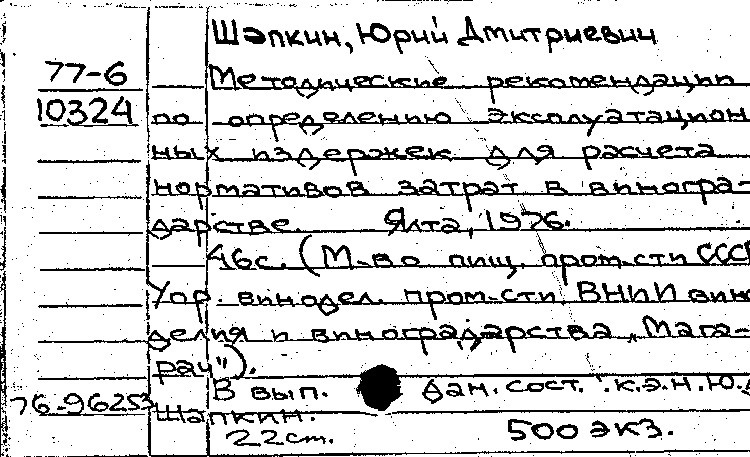 Шапкин, Юрий Дмитриевич
77-6
10324
Методические рекомендации
по определению эксплуатацион
ных издержек для расчета
нормативов затрат в виногра-
дарстве. Ялта, 1976.
46с. (М-во пищ. пром-сти СССР
Упр. винодел. пром-сти. ВНИИ вино
делия и виноградарства „Мага-
рач").
В вып. дан. сост. к.э.н. Ю.Д
76-96253
Шапкин.
22 см. 500 экз.